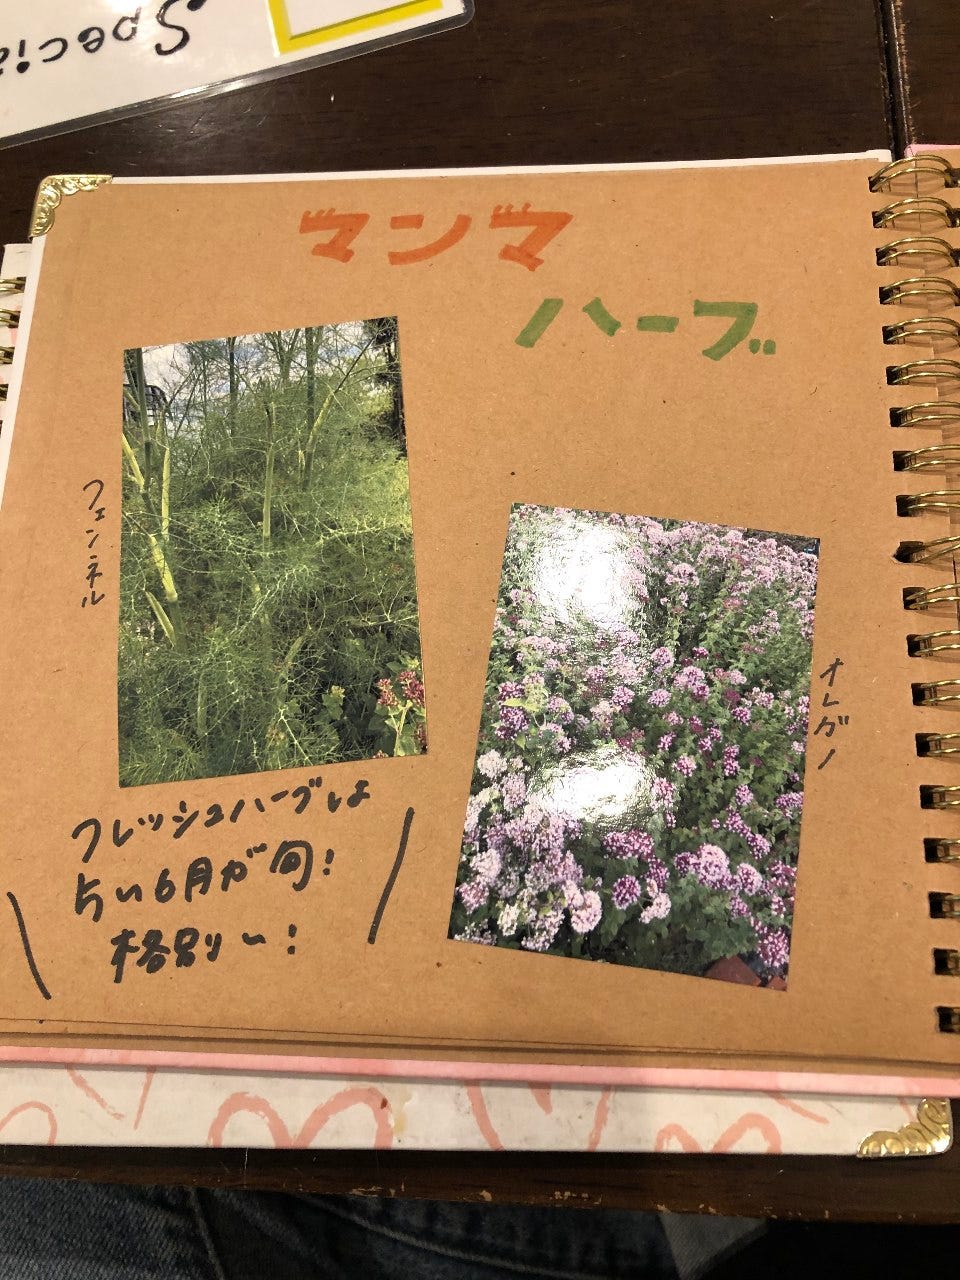 Specia
マンマ
ハーブ
フェンネル
オレガノ
フレッシュハーブは
6月が旬!
格別〜!